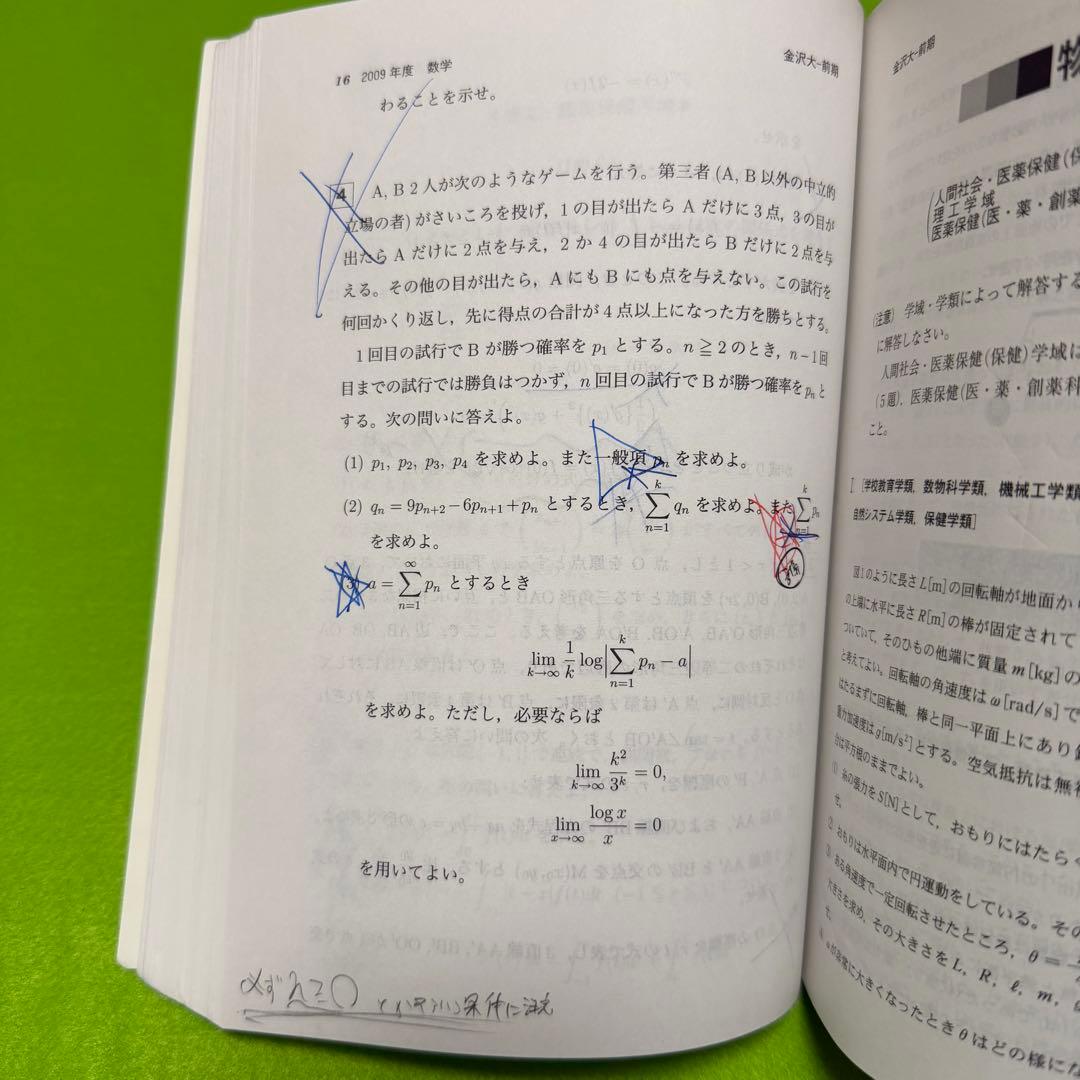 16 2009年度 数学
金沢大-前期
わることを示せ。
4 A, B 2人が次のようなゲームを行う。第三者(A, B以外の中立的
立場の者)がさいころを投げ, 1の目が出たら Aだけに3点, 3の目が
出たら Aだけに2点を与え, 2か4の目が出たら Bだけに2点を与
える。その他の目が出たら, AにもBにも点を与えない。この試行を
何回かくり返し, 先に得点の合計が4点以上になった方を勝ちとする。
1回目の試行でBが勝つ確率をp₁とする。n≧2のとき, n-1回
目までの試行では勝負はつかず, n回目の試行でBが勝つ確率をpₙと
する。次の問いに答えよ。
(1) p₁, p₂, p₃, p₄ を求めよ。また一般項 pₙ を求めよ。
(2) qₙ = 9pₙ₊₂ - 6pₙ₊₁ + pₙ とするとき, ∑_{n=1}^{k} qₙ を求めよ。また ∑_{n=1}^{k} pₙ
を求めよ。
a = ∑_{n=1}^{∞} pₙ とするとき
lim_{k→∞} 1/k log|∑_{n=1}^{k} pₙ - a|
を求めよ。ただし, 必要ならば
lim_{k→∞} k²/3ᵏ = 0,
lim_{x→∞} log x/x = 0
を用いてよい。
必ず
条件に注意
金沢大-前期
物
人間社会・医薬保健(保
理工学域
医薬保健(医・薬・創薬
(注意) 学域・学類によって解答する
に解答しなさい。
人間社会・医薬保健(保健)学域は
(5題), 医薬保健(医・薬・創薬科
こと。
I [学校教育学類, 数物科学類, 機械工学類
自然システム学類, 保健学類]
図1のように長さL[m]の回転軸が地面か
の上端に水平に長さR[m]の棒が固定されて
ついていて, そのひもの他端に質量m[kg]の
と考えてよい。回転軸の角速度はω[rad/s]で
はたるまずに回転軸, 棒と同一平面上にあり
重力加速度はg[m/s²]とする。空気抵抗は無
合は平方根のままでよい。
(1) 糸の張力をS[N]として, おもりにはたら
せ。
(2) おもりは水平面内で円運動をしている。その
(3) ある角速度で一定回転させたところ, θ=
大きさを求め, その大きさをL, R, ℓ, m,
せ。
が非常に大きくなったときθはどの様にな